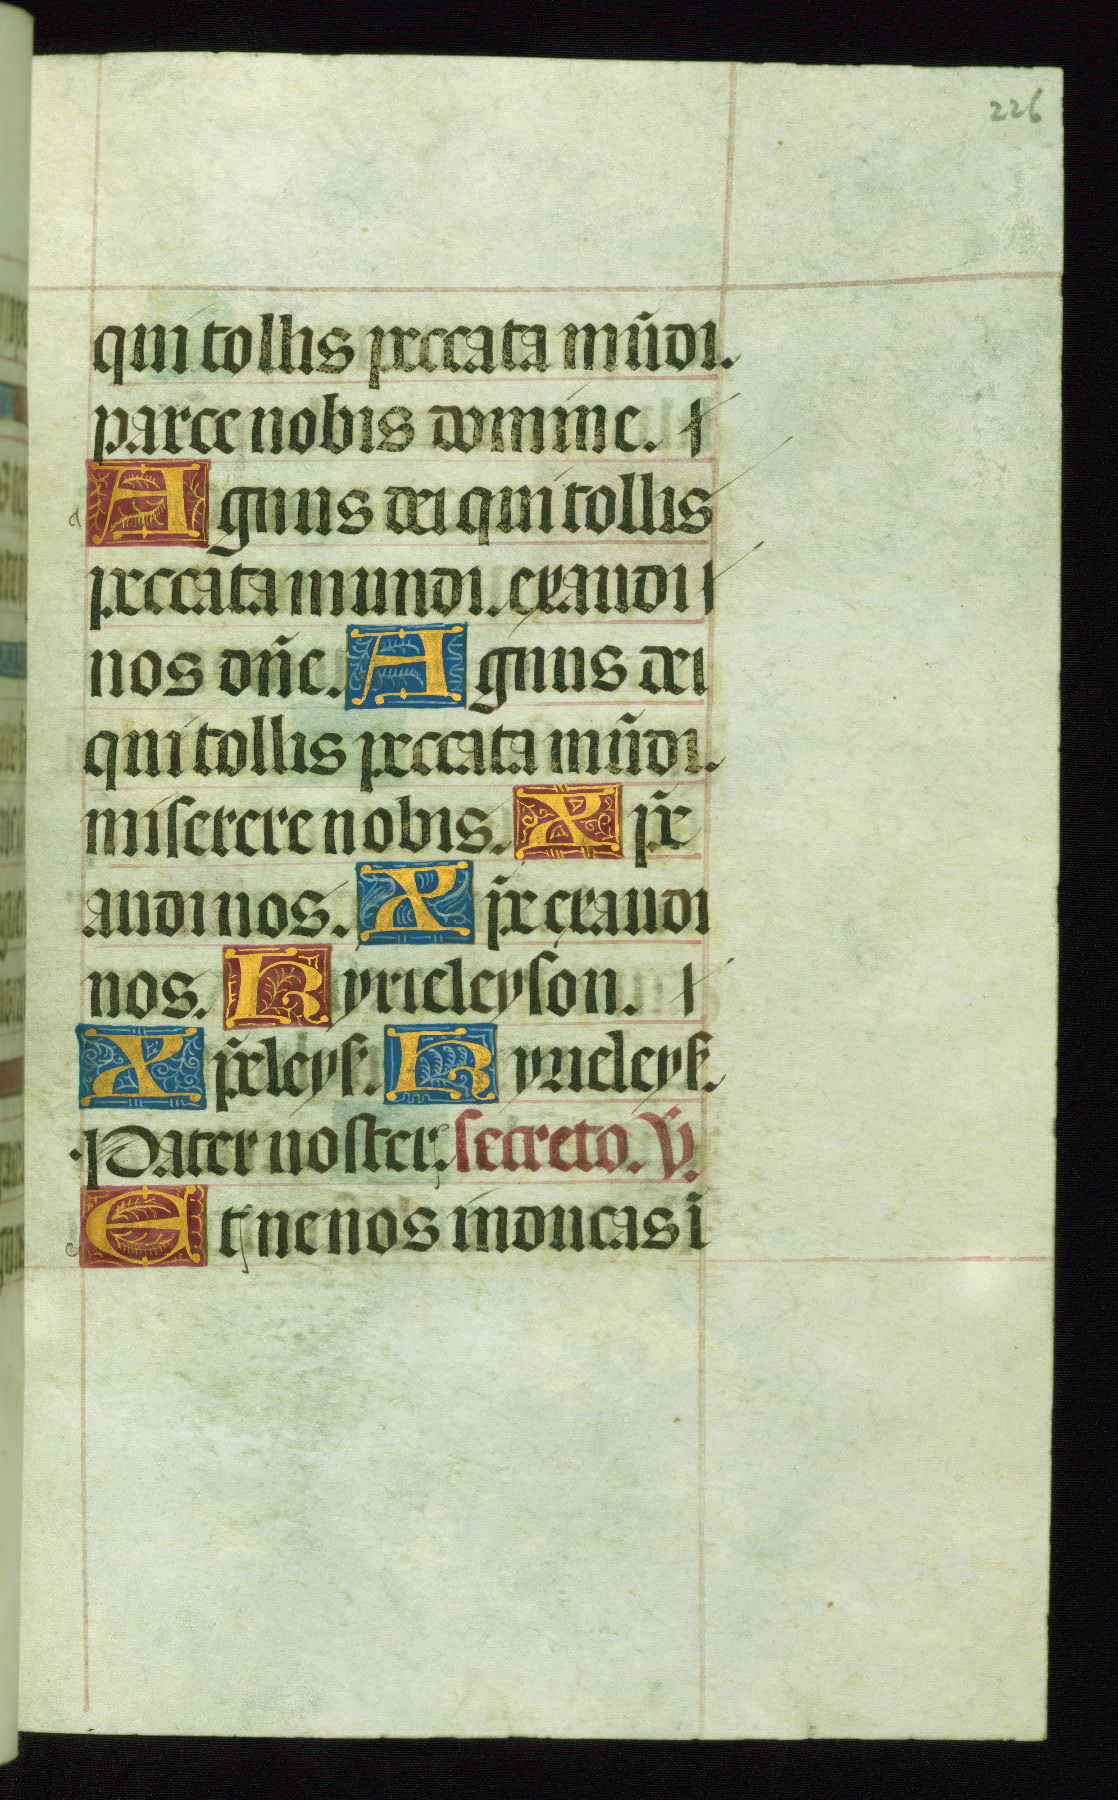 226
qui tollis peccata mūdi.
parce nobis domine.
Agnus dei qui tollis
peccata mundi. exaudi
nos dñe. Agnus dei
qui tollis peccata mūdi.
miserere nobis. Xp̄e
audi nos. Xp̄e exaudi
nos. Kyrieleyson.
Xp̄eleys. Kyrieleys.
Pater noster. secreto. V̄.
Et ne nos inducas ī